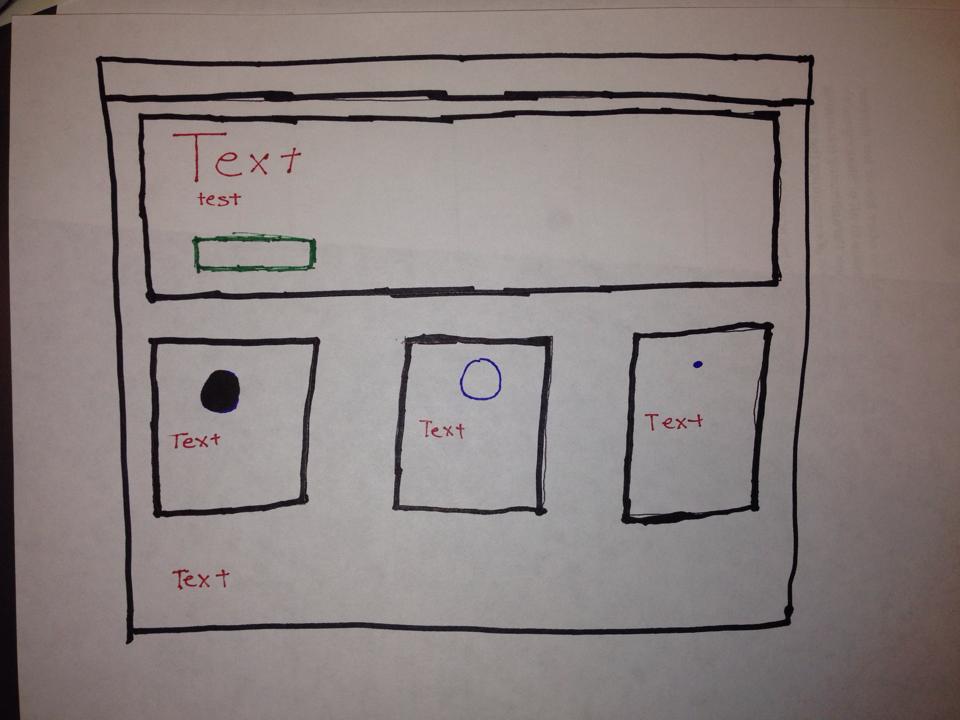 Text
test
Text
Text
Text
Text